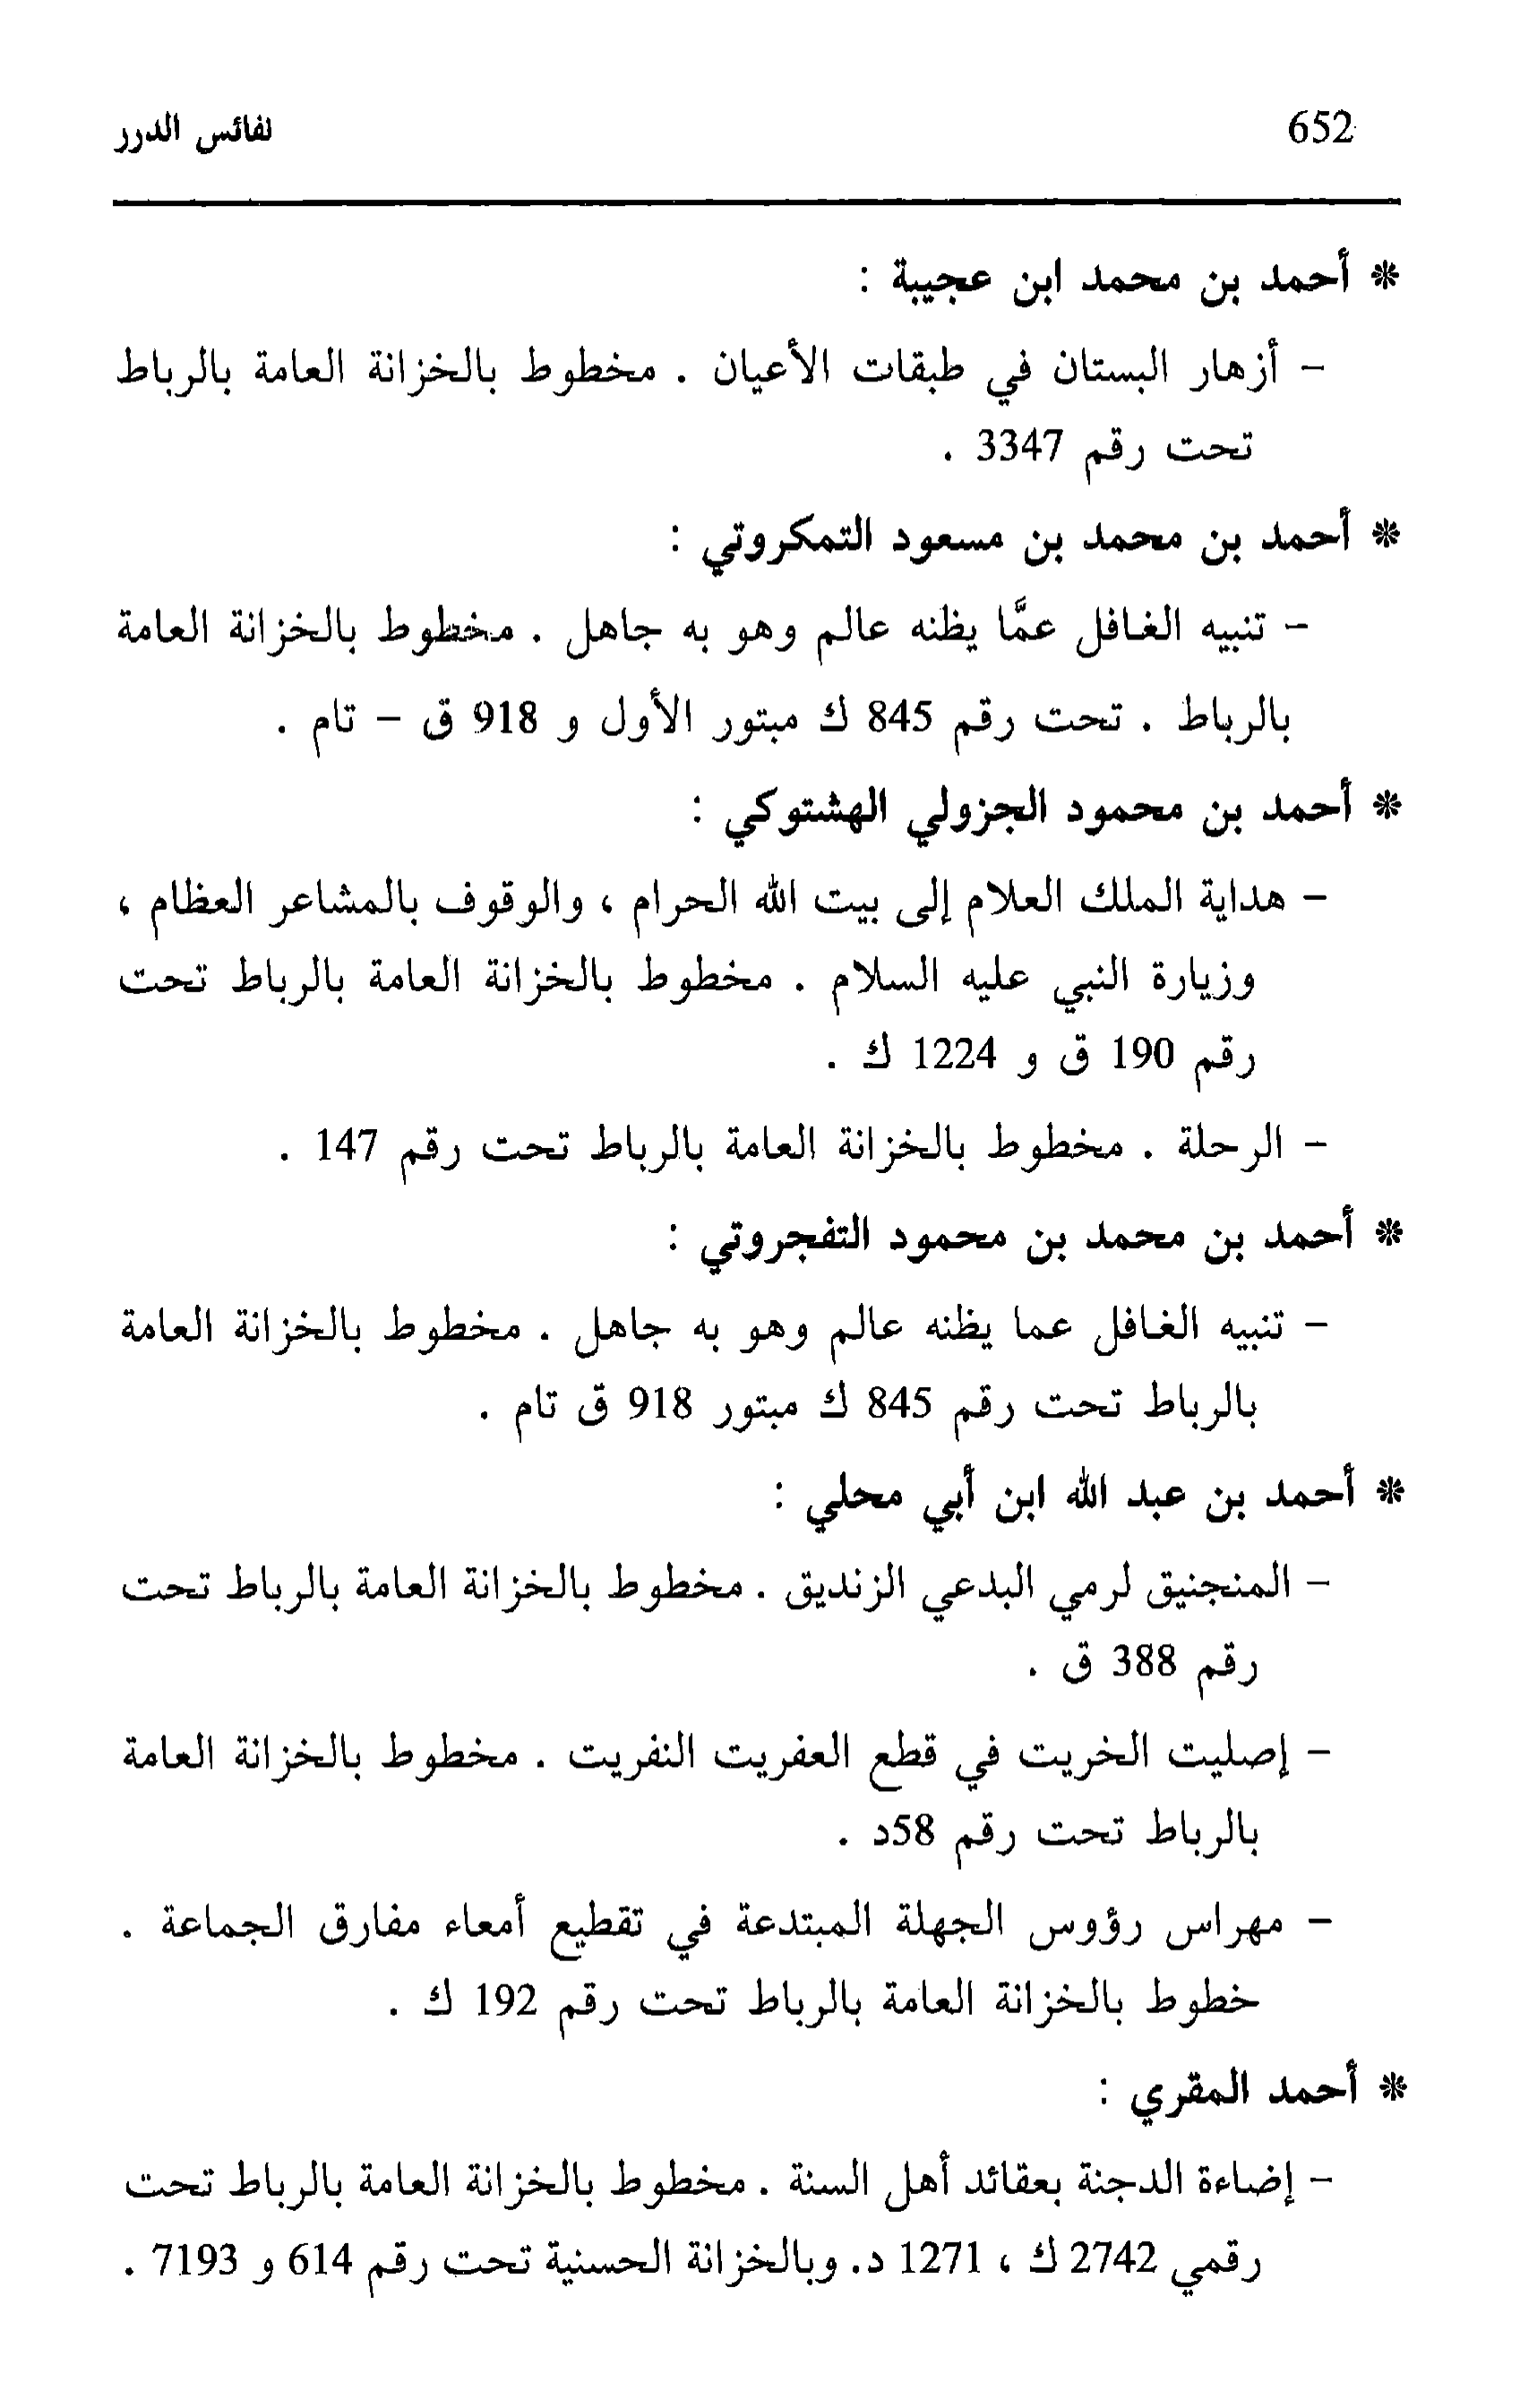 652
نفائس الدرر
* أحمد بن محمد ابن عجيبة :
- أزهار البستان في طبقات الأعيان . مخطوط بالخزانة العامة بالرباط
تحت رقم 3347 .
* أحمد بن محمد بن مسعود التمكروتي :
- تنبيه الغافل عمَّا يظنه عالم وهو به جاهل . مخطوط بالخزانة العامة
بالرباط . تحت رقم 845 ك مبتور الأول و 918 ق - تام .
* أحمد بن محمود الجزولي الهشتوكي :
- هداية الملك العلام إلى بيت الله الحرام ، والوقوف بالمشاعر العظام ،
وزيارة النبي عليه السلام . مخطوط بالخزانة العامة بالرباط تحت
رقم 190 ق و 1224 ك .
- الرحلة . مخطوط بالخزانة العامة بالرباط تحت رقم 147 .
* أحمد بن محمد بن محمود التفجروتي :
- تنبيه الغافل عما يظنه عالم وهو به جاهل . مخطوط بالخزانة العامة
بالرباط تحت رقم 845 ك مبتور 918 ق تام .
* أحمد بن عبد الله ابن أبي محلي :
- المنجنيق لرمي البدعي الزنديق . مخطوط بالخزانة العامة بالرباط تحت
رقم 388 ق .
- إصليت الخريت في قطع العفريت النفريت . مخطوط بالخزانة العامة
بالرباط تحت رقم 58د .
- مهراس رؤوس الجهلة المبتدعة في تقطيع أمعاء مفارق الجماعة .
خطوط بالخزانة العامة بالرباط تحت رقم 192 ك .
* أحمد المقري :
- إضاءة الدجنة بعقائد أهل السنة . مخطوط بالخزانة العامة بالرباط تحت
رقمي 2742 ك ، 1271 د. وبالخزانة الحسنية تحت رقم 614 و 7193 .